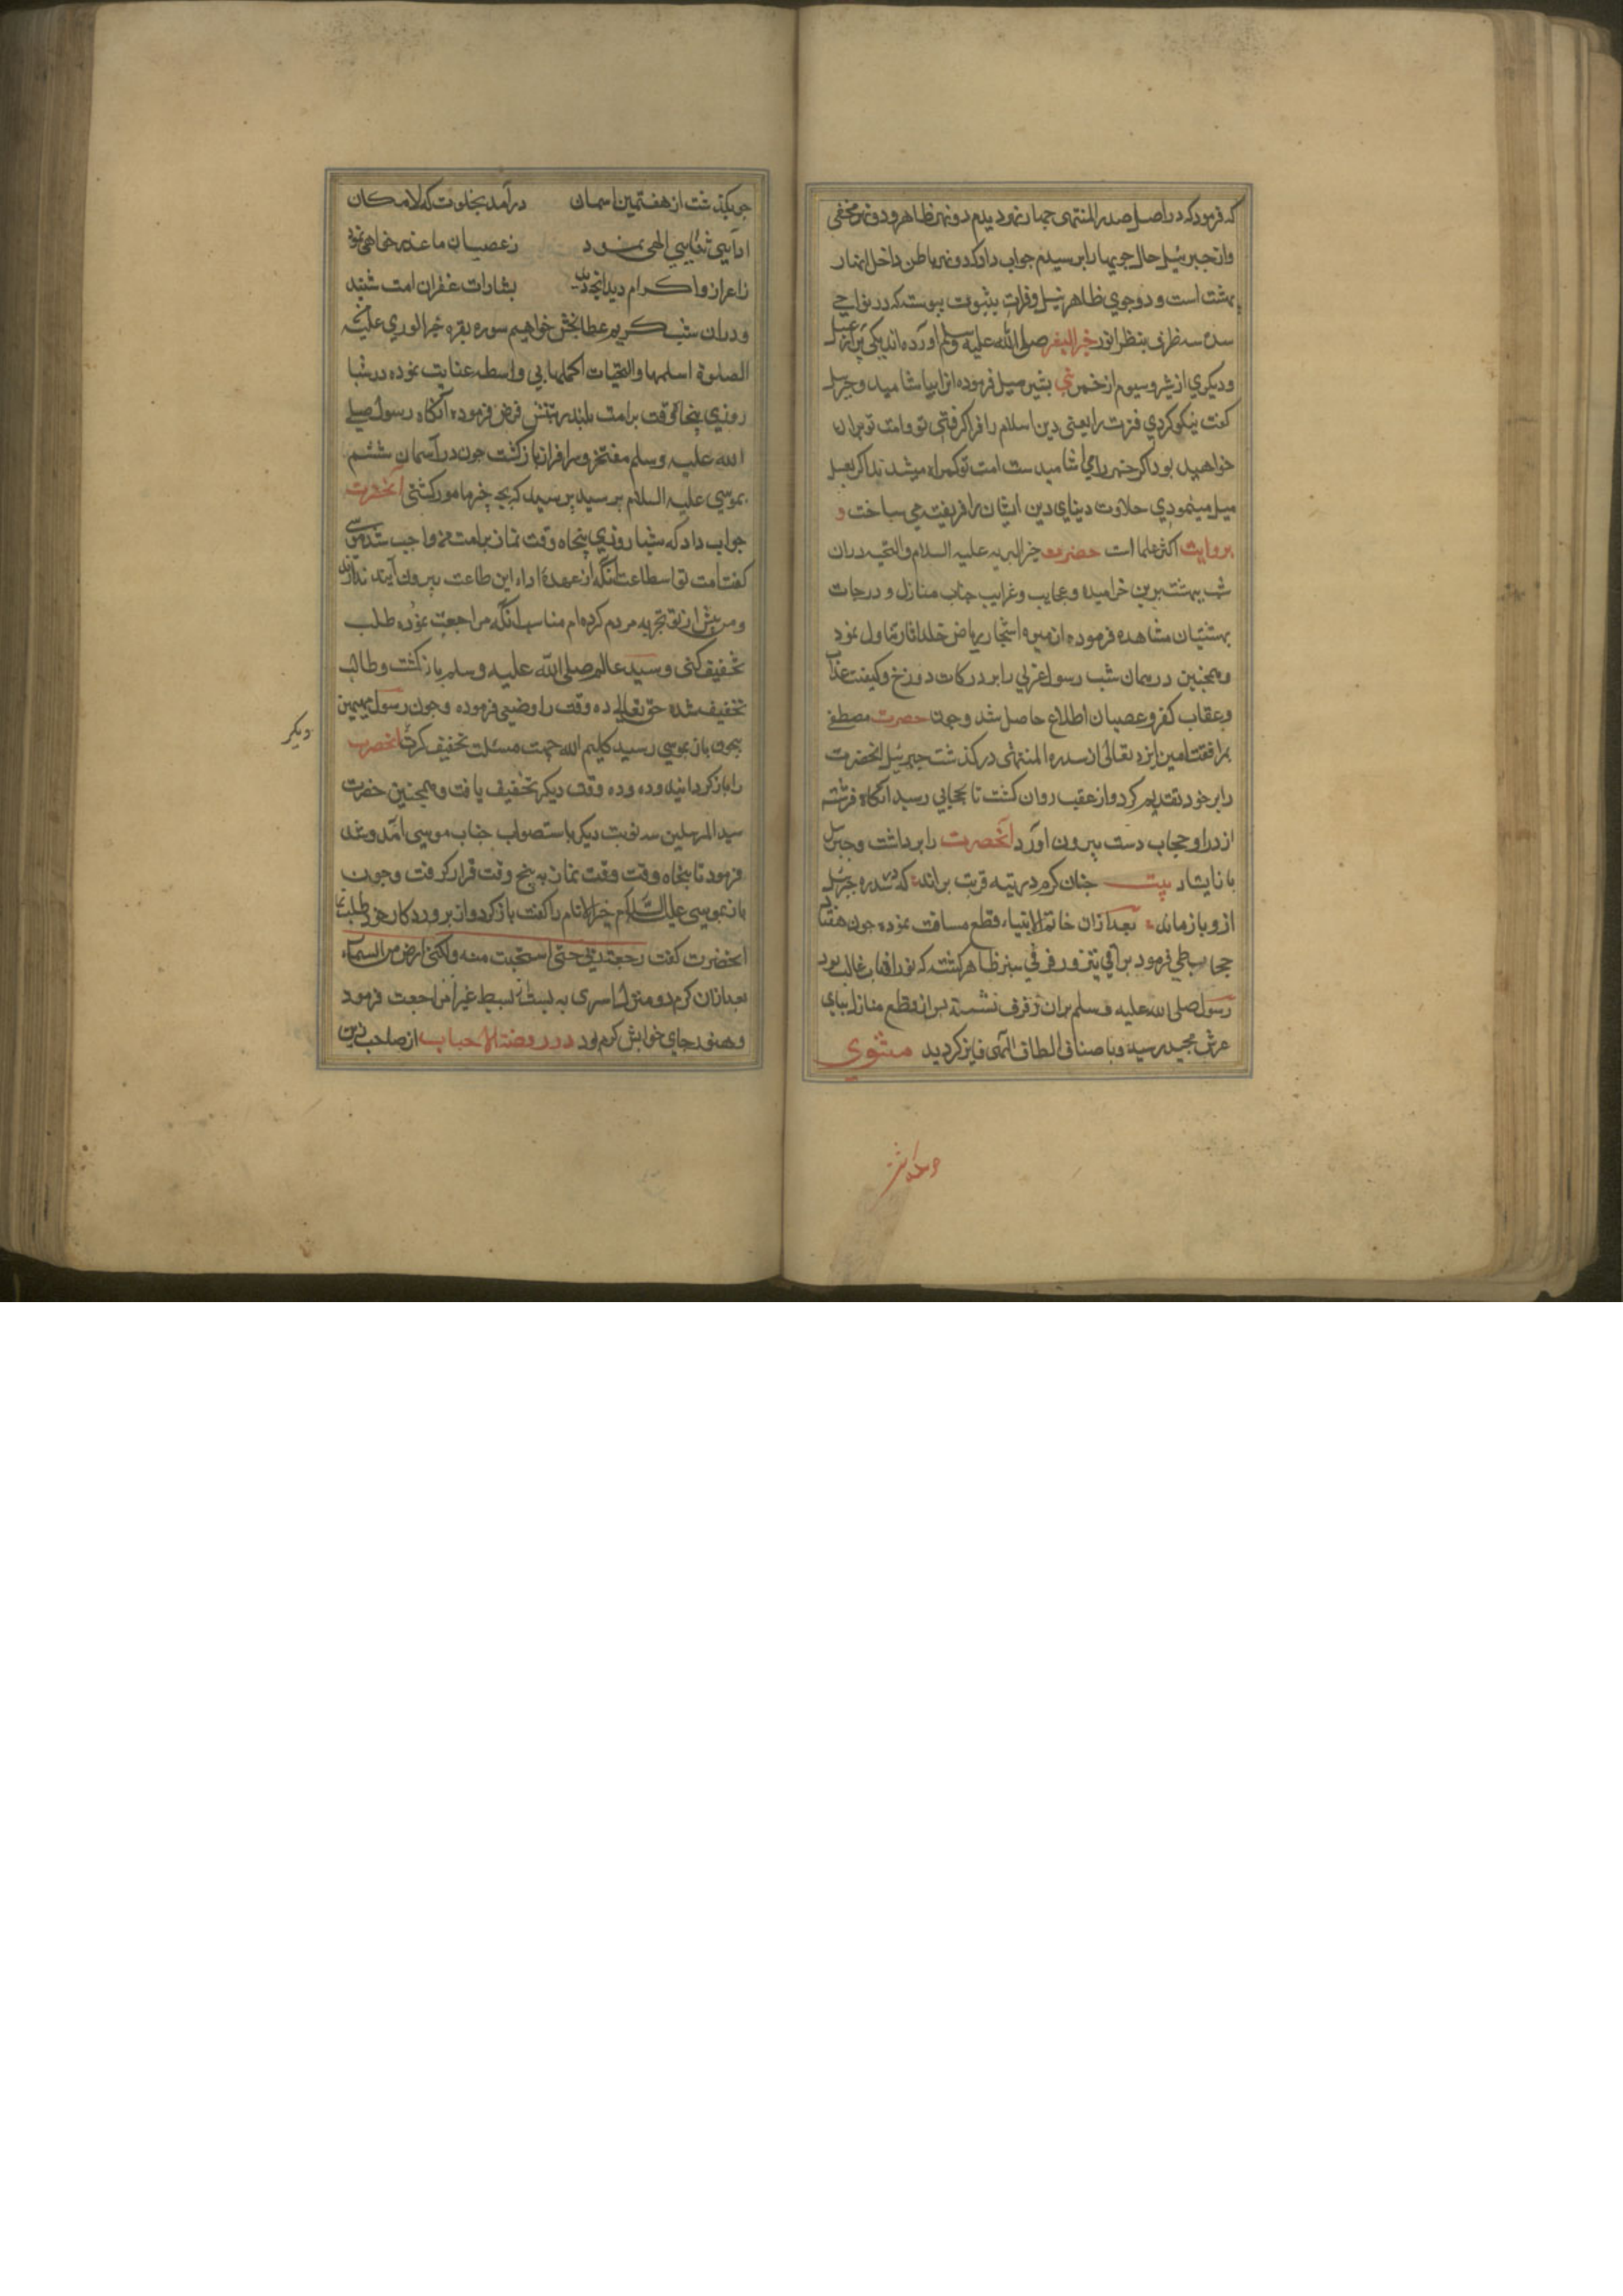 که فرمود که در اصل صدر المنتهی چهار نهر دیدم دو نهر ظاهر و دو نهر مخفی
و از جبرئیل حال جویها را پرسیدم جواب داد که دو نهر باطن داخل انهار
بهشت است و دو جوی ظاهر نیل و فرات بثبوت پیوسته که در نواحی
سدره سه ظرف بنظر انور خیر البشر صلی الله علیه وسلم آورده اند یکی پر از عسل
و دیگری از شیر و سیوم از خمر نبی بشیر میل فرموده ازا بیاشامید و جبرئیل
کفت نیکو کردی فطرت را یعنی دین اسلام را فرا کرفتی تو و امت تو بران
خواهید بود اکر خمر را می اشامیدی امت تو کمراه میشدند اکر بعسل
میل مینمودی حلاوت دنیای دین ایشان را فریفته می ساخت و
بروایت اکثر علما است حضرت خیر البریه علیه السلام والتحیه دران
شب ببهشت برین خرامیده و عجایب و غرایب جناب منازل و درجات
بهشتیان مشاهده فرموده از میوه اشجار ریاض خلد اثار تناول نمود
و همچنین در همان شب رسول عربی را بر درکات دوزخ و کیفیت عذاب
و عقاب کفر و عصیان اطلاع حاصل شد و چون حضرت مصطفی
بمرافقت امین ایزد تعالی از سدره المنتهی درکذشت جبرئیل انحضرت
را بر خود تقدیم کرد و از عقب روان کشت تا بحجابی رسید انکاه فرشته
از درا و حجاب دست بیرون آورد انحضرت را برداشت و جبرئیل
باز ایستاد بیت چنان کرم در تیه قربت براند که در سدره جبرئیل
ازو باز ماند بعد ازان خاتم الانبیاء قطع مسافت نموده چون هفتاد
حجاب طی فرمود براقی بنرفت و رفرفی سبز ظاهر کشت که نور افتاب غالب بود
رسول صلی الله علیه و سلم بران رفرف نشسته پس از قطع منازل بپای
عرش مجید رسید و باصناف الطاف الهی فایز کردید مثنوی
چو بکذشت از هفتمین اسمان درآمد بخلوت که لامکان
ادای ثنای الهی نمود ز عصیان ما عذر خواهی نمود
ز اعزاز و اکرام دید انچه دید بشارات غفران امت شنید
و دران شب کریم عطابخش خواتیم سوره بقره خیر الوری علیه
الصلوة اسلمها والتحیات اکملها بی واسطه عنایت نموده در شبا
روزی پنجاه وقت برامت بلند مرتبتش فرض فرموده آنکاه رسول صلی
الله علیه وسلم مفتخر و سرافراز بازکشت چون در آسمان ششم
بموسی علیه السلام رسید پرسید که بچه چیز مامور کشتی انحضرت
جواب داد که شبا روزی پنجاه وقت نماز برامت من واجب شد موسی
کفت امت تو استطاعت انکه از عهدهٔ اداء این طاعت بیرون آیند ندارند
و من پیش از تو تجربه مردم کرده ام مناسب انکه مراجعت نموده طلب
تخفیف کنی و سید عالم صلی الله علیه وسلم باز کشت و طالب
تخفیف شده حق تعالی ده وقت را وضیع فرموده و چون رسول مهیمن
بیچون باز بموسی رسید کلیم الله جهت مسئلت تخفیف کرت انحضرت
دیکر
را باز کردانیده و ده وقت دیکر تخفیف یافت و همچنین حضرت
سید المرسلین سه نوبت دیکر باستصواب جناب موسی آمد و شد
فرمود تا پنجاه وقت وقت نماز به پنج وقت قرار کرفت و چون
باز بموسی علیه السلام خیر الانام را کفت باز کرد و از پروردکار خود طلب نما
انحضرت کفت رجعت ربی حتی استحییت منه ولکنی ارض من السماء
بعد ازان کرم رو منزل اسری به بسیط غبرا مراجعت فرمود
و هنوز جای خوابش کرم بود در روضة الاحباب از صاحب زین